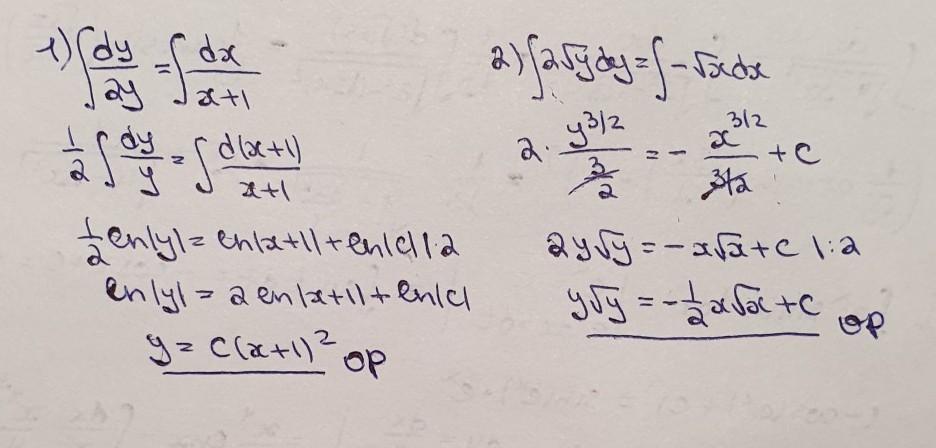 1) ∫ dy/2y = ∫ dx/x+1
1/2 ∫ dy/y = ∫ d(x+1)/x+1
1/2 ln|y| = ln|x+1| + ln|c| |·2
ln|y| = 2 ln|x+1| + ln|c|
y = c(x+1)² op
2) ∫2√y dy = ∫-√x dx
2 · y^3/2 / 3/2 = - x^3/2 / 3/2 + c
2y√y = -x√x + c |:2
y√y = -1/2 x√x + c op